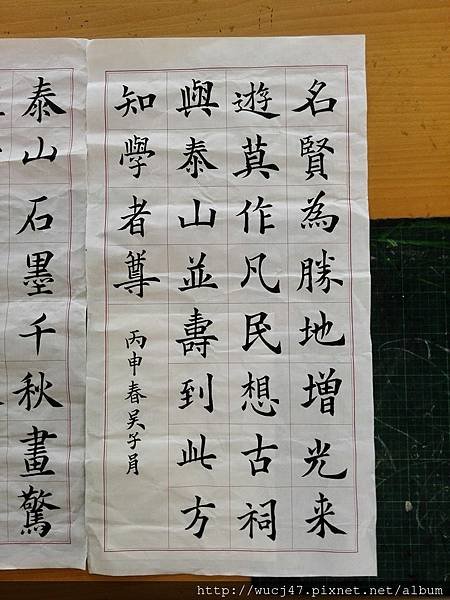 名賢為勝地增光来
遊莫作凡民想古祠
與泰山並壽到此方
知學者尊
丙申春吴子肙
泰山石墨千秋畫驚
http://wucj47.pixnet.net/album